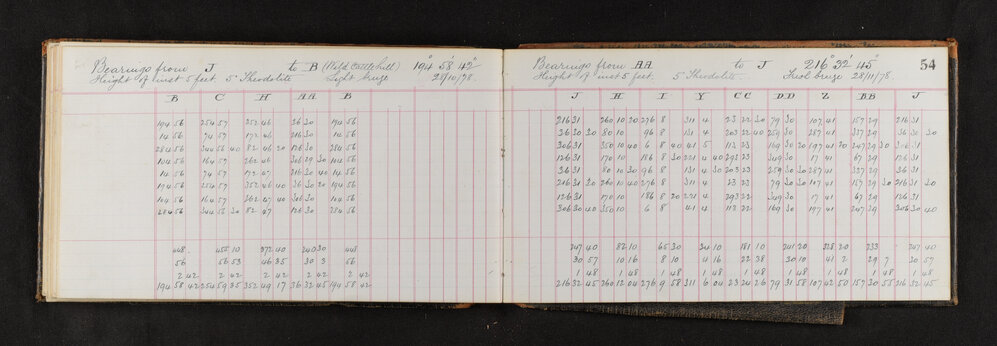 Bearings from J to B (Wild Cattle hill) 194° 58' 42"
Height of inst 5 feet 5" Theodolite Light brize 28/10/78.
B C H AA B
194 56 254 57 352 46 36 30 194 56
14 56 74 57 172 46 216 30 14 56
284 56 344 56 40 82 46 20 126 30 284 56
104 56 164 57 262 46 306 29 30 104 56
14 56 74 57 172 47 216 30 40 14 56
194 56 254 57 352 46 40 36 30 20 194 56
104 56 164 57 262 47 40 306 30 104 56
284 56 344 56 30 82 47 126 30 284 56
448 455 10 372 40 240 30 448
56 56 53 46 35 30 3 56
2 42 2 42 2 42 2 42 2 42
194 58 42 254 59 35 352 49 17 36 32 45 194 58 42
Bearings from AA to J 216° 32' 45" 54
Height of inst 5 feet 5" Theodolite Fresh brize 28/11/78.
J H I Y CC DD Z BB J
216 31 260 10 20 276 8 311 4 23 22 30 79 30 107 41 157 29 216 31
36 30 30 80 10 96 8 131 4 203 22 40 259 30 287 41 337 29 36 30 30
306 31 350 10 40 6 8 40 41 5 113 23 169 30 20 197 41 20 247 29 30 306 31
126 31 170 10 186 8 30 221 4 40 293 23 349 30 17 41 67 29 126 31
36 31 80 10 30 96 8 131 4 30 203 23 259 30 30 287 41 337 29 36 31
216 31 20 260 10 40 276 8 311 4 23 23 79 30 30 107 41 157 29 30 216 31 20
126 31 170 10 186 8 20 221 4 293 22 349 30 17 41 67 29 126 31
306 30 40 350 10 6 8 41 4 113 22 169 30 197 41 247 29 306 30 40
247 40 82 10 65 30 34 10 181 10 241 20 328 20 233 247 40
30 57 10 16 8 10 4 16 22 38 30 10 41 2 29 7 30 57
1 48 1 48 1 48 1 48 1 48 1 48 1 48 1 48 1 48
216 32 45 260 12 04 276 9 58 311 6 04 23 24 26 79 31 58 107 42 50 157 30 55 216 32 45